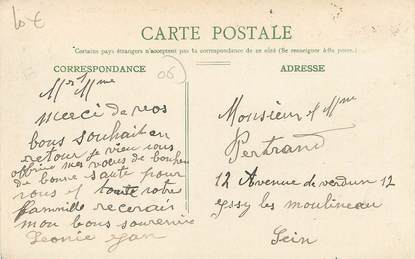 10 €
CARTE POSTALE
Certains pays étrangers n'acceptent pas la correspondance de ce côté (Se renseigner à la poste).
CORRESPONDANCE
06
ADRESSE
Mr Mme
Merci de vos
bons souhait en
retour je vien vous
offrire mes voeus de bonheur
de bonne sante pour
vous et toute votre
fammille recevais
mon bons souvenir
Leonie
Monsieur et Mme
Pertrand
12 Avenue de verdun 12
yssy les moulineau
Sein